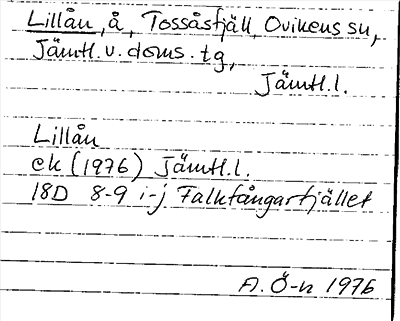 Lillån, å, Tossåsfjäll, Ovikens sn,
Jämtl. v. doms. tg,
Jämtl. l.
Lillån
ek (1976) Jämtl. l.
18D 8-9 i-j Falkfångarfjället
A. Ö-n 1976